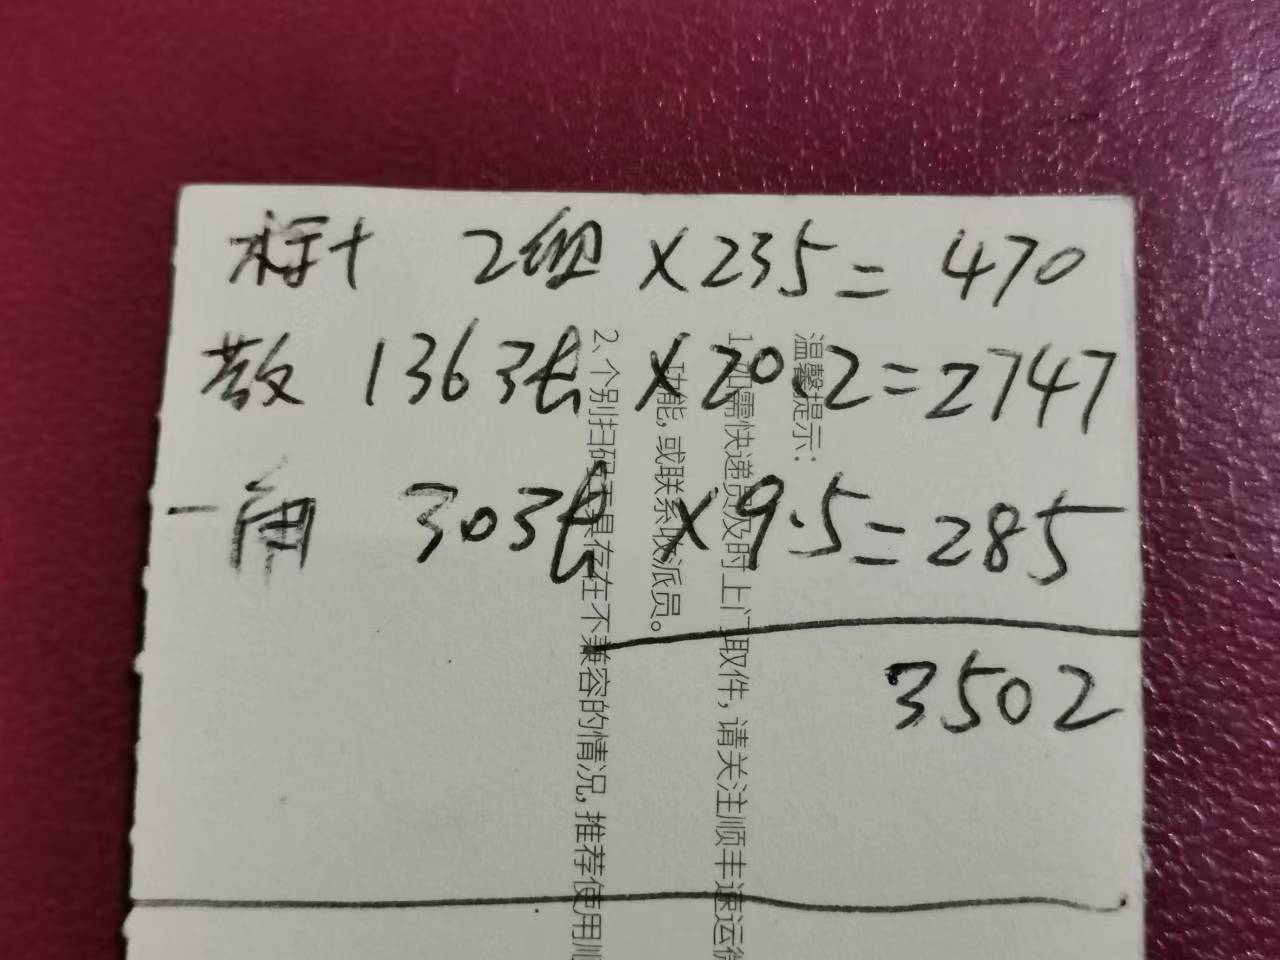 标十 2组 ×235=470
散 136张 ×20.2=2747
一角 30张 ×9.5=285
3502
温馨提示：
1、如需快递员及时上门取件，请关注顺丰速运微
功能，或联系收派员。
2、个别扫码工具存在不兼容的情况，推荐使用顺